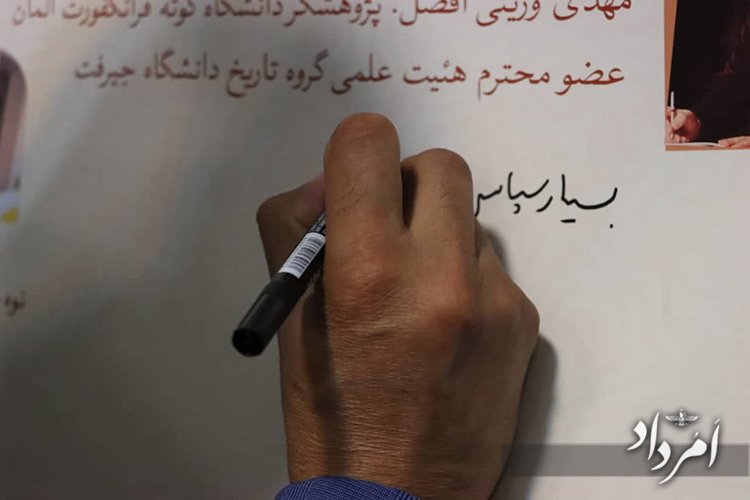 مهدی ورینی افضل. پژوهشگر دانشگاه گوته فرانکفورت آلمان
عضو محترم هئیت علمی گروه تاریخ دانشگاه جیرفت
بسیار سپاس
اَمُرداد